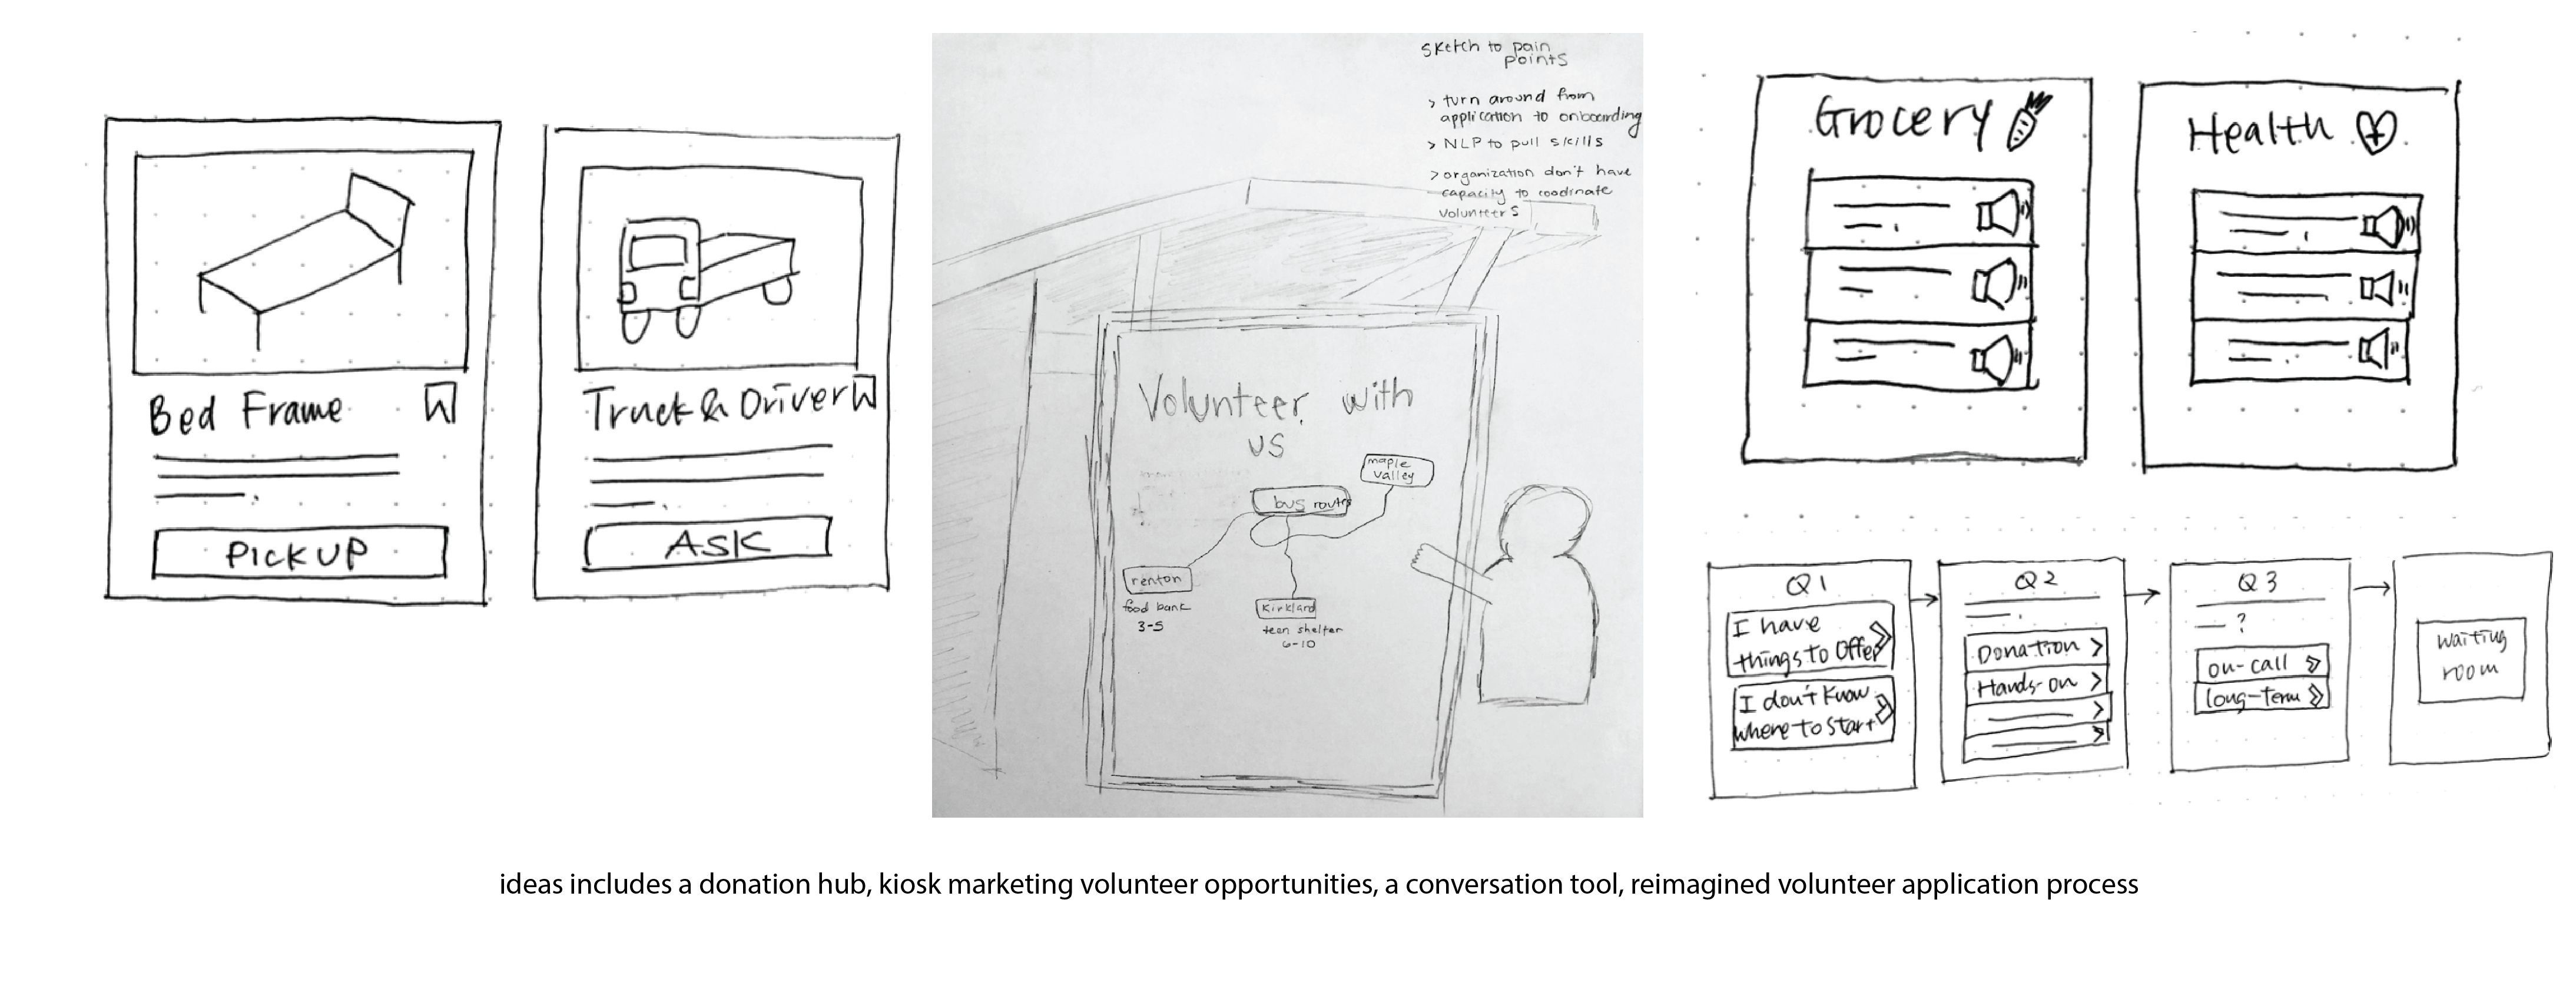 Bed Frame
PICK UP
Truck & Driver
ASK
sketch to pain
points
> turn around from
application to onboarding
> NLP to pull skills
> organization don't have
capacity to coodinate
volunteers
Volunteer with
us
maple
valley
bus route
renton
food bank
3-5
Kirkland
teen shelter
6-10
Grocery
Health
Q1
I have
things to Offer
I don't know
where to start
Q2
Donation
Hands-on
Q3
?
on-call
long-term
waiting
room
ideas includes a donation hub, kiosk marketing volunteer opportunities, a conversation tool, reimagined volunteer application process